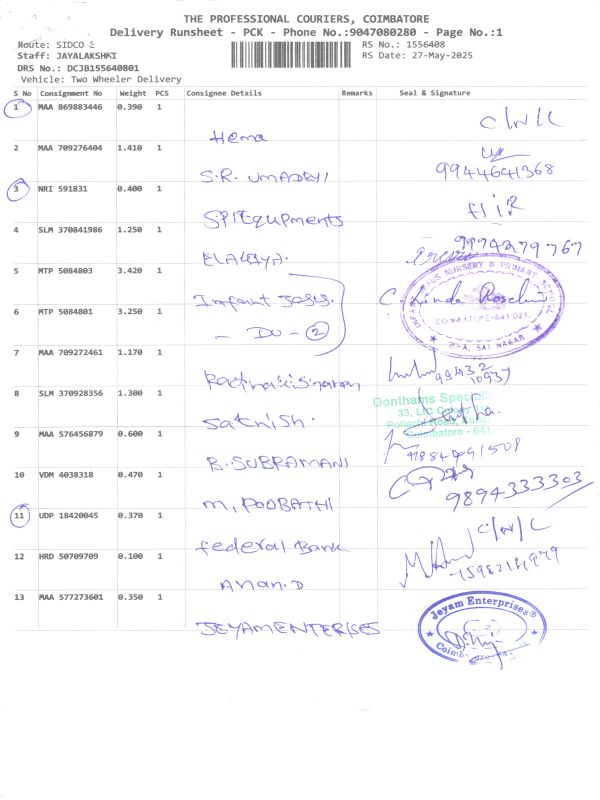 THE PROFESSIONAL COURIERS, COIMBATORE
Delivery Runsheet - PCK - Phone No.:9047080280 - Page No.:1
Route: SIDCO
Staff: JAYALAKSHMI
DRS No.: DCJB155640801
Vehicle: Two Wheeler Delivery
RS No.: 1556408
RS Date: 27-May-2025
S No Consignment No Weight PCS Consignee Details Remarks Seal & Signature
1 MAA 869883446 0.390 1
Hema
2 MAA 709276404 1.410 1
S.R. UMADEVI 9944641368
3 NRI 591831 0.400 1
SPI Equpments
4 SLM 370841986 1.250 1
9994279767
5 MTP 5084803 3.420 1
Infant Jesus
6 MTP 5084801 3.250 1
- DO - 2
7 MAA 709272461 1.170 1
8 SLM 370928356 1.300 1
Sathish.
9 MAA 576456879 0.600 1
B. SUBRAMANI
10 VDM 4038318 0.470 1
M. POOBATHI 9894333303
11 UDP 18420045 0.370 1
federal Bank
12 HRD 50709709 0.100 1
Anan.D
13 MAA 577273601 0.350 1
JEYAM ENTERISES
Jeyam Enterprises®